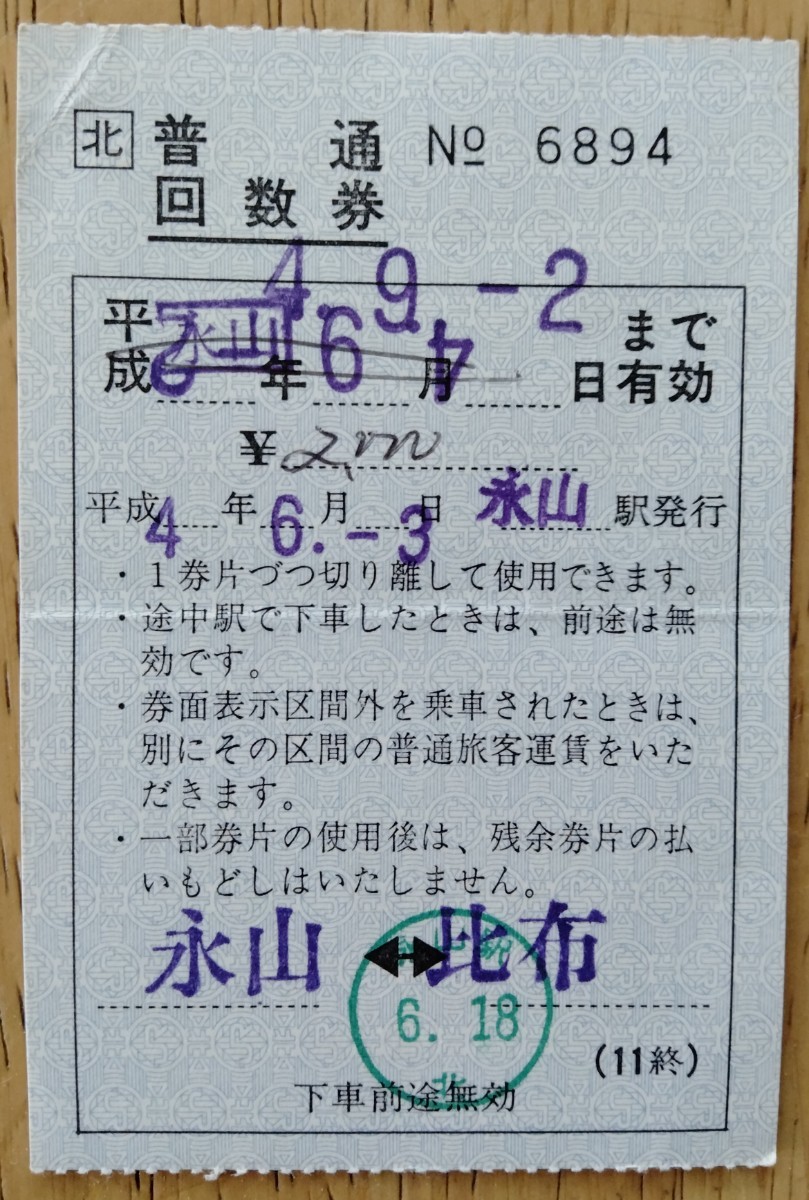 北 普通 № 6894
回数券
4. 9. -2
平成 年 6 月 4 日 まで有効
永山
¥2,000
平成 4 年 6. 月 -3 日 永山 駅発行
・1券片づつ切り離して使用できます。
・途中駅で下車したときは、前途は無
効です。
・券面表示区間外を乗車されたときは、
別にその区間の普通旅客運賃をいた
だきます。
・一部券片の使用後は、残余券片の払
いもどしはいたしません。
永山 ↔ 比布
駅
6. 18
北
(11終)
下車前途無効